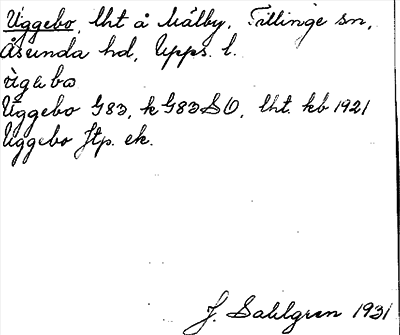 Uggebo, lht å Målby, Tillinge sn,
Åsunda hd, Upps. l.
ùgabo
Uggebo G83, k G83SO, lht. kb 1921
Uggebo ftp. ek.
J. Sahlgren 1931